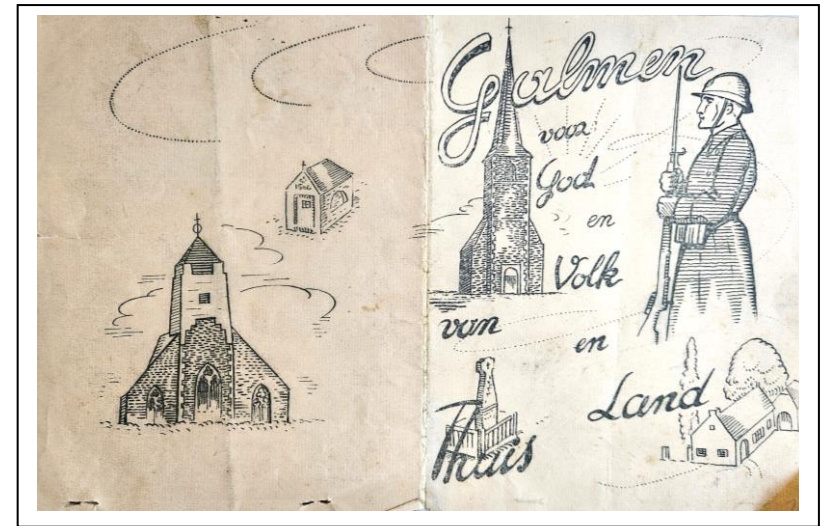 Galmen
voor
God
en
Volk
van
en
Land
Thuis